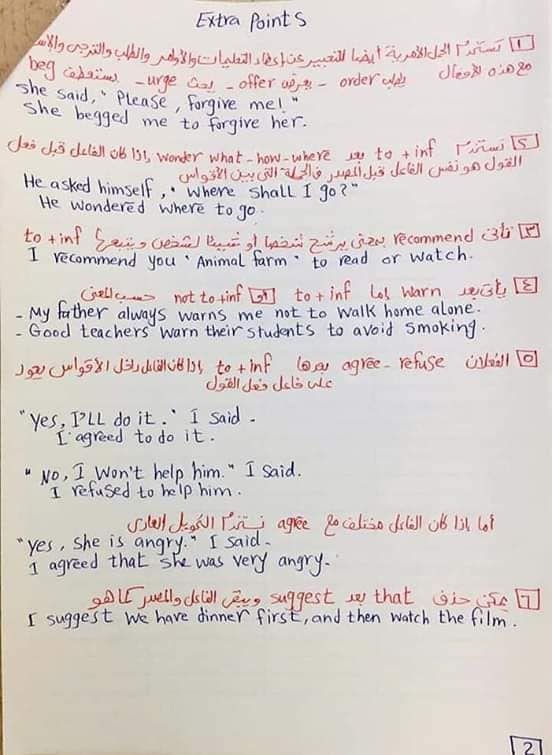 Extra Points
١ تستخدم الجمل الأمرية أيضا للتعبير عن إعطاء التعليمات والأوامر والطلب والترجى
مع هذه الأفعال يطلب order - يعرض offer - يحث urge - يستعطف beg
She said, "Please, forgive me!"
She begged me to forgive her.
٢ تستخدم to + inf بعد wonder what - how - where إذا كان الفاعل قبل فعل
القول هو نفس الفاعل قبل المصدر فى الجملة التى بين الأقواس
He asked himself, "Where shall I go?"
He wondered where to go.
٣ تأتى recommend بمعنى يرشح شخصا أو شيئا لشخص ويتبعها to + inf
I recommend you "Animal farm" to read or watch.
٤ يأتى بعد warn إما to + inf أو not to + inf حسب المعنى
- My father always warns me not to walk home alone.
- Good teachers warn their students to avoid smoking.
٥ الفعلان agree - refuse بعدها to + inf إذا كان الفاعل داخل الأقواس يعود
على فاعل فعل القول
"Yes, I'LL do it." I said.
I agreed to do it.
"No, I won't help him." I said.
I refused to help him.
أما إذا كان الفاعل مختلف مع agree نستخدم التحويل العادى
"yes, she is angry." I said.
I agreed that she was very angry.
٦ يمكن حذف that بعد suggest ويبقى الفاعل والمصدر كما هو
I suggest we have dinner first, and then watch the film.
2